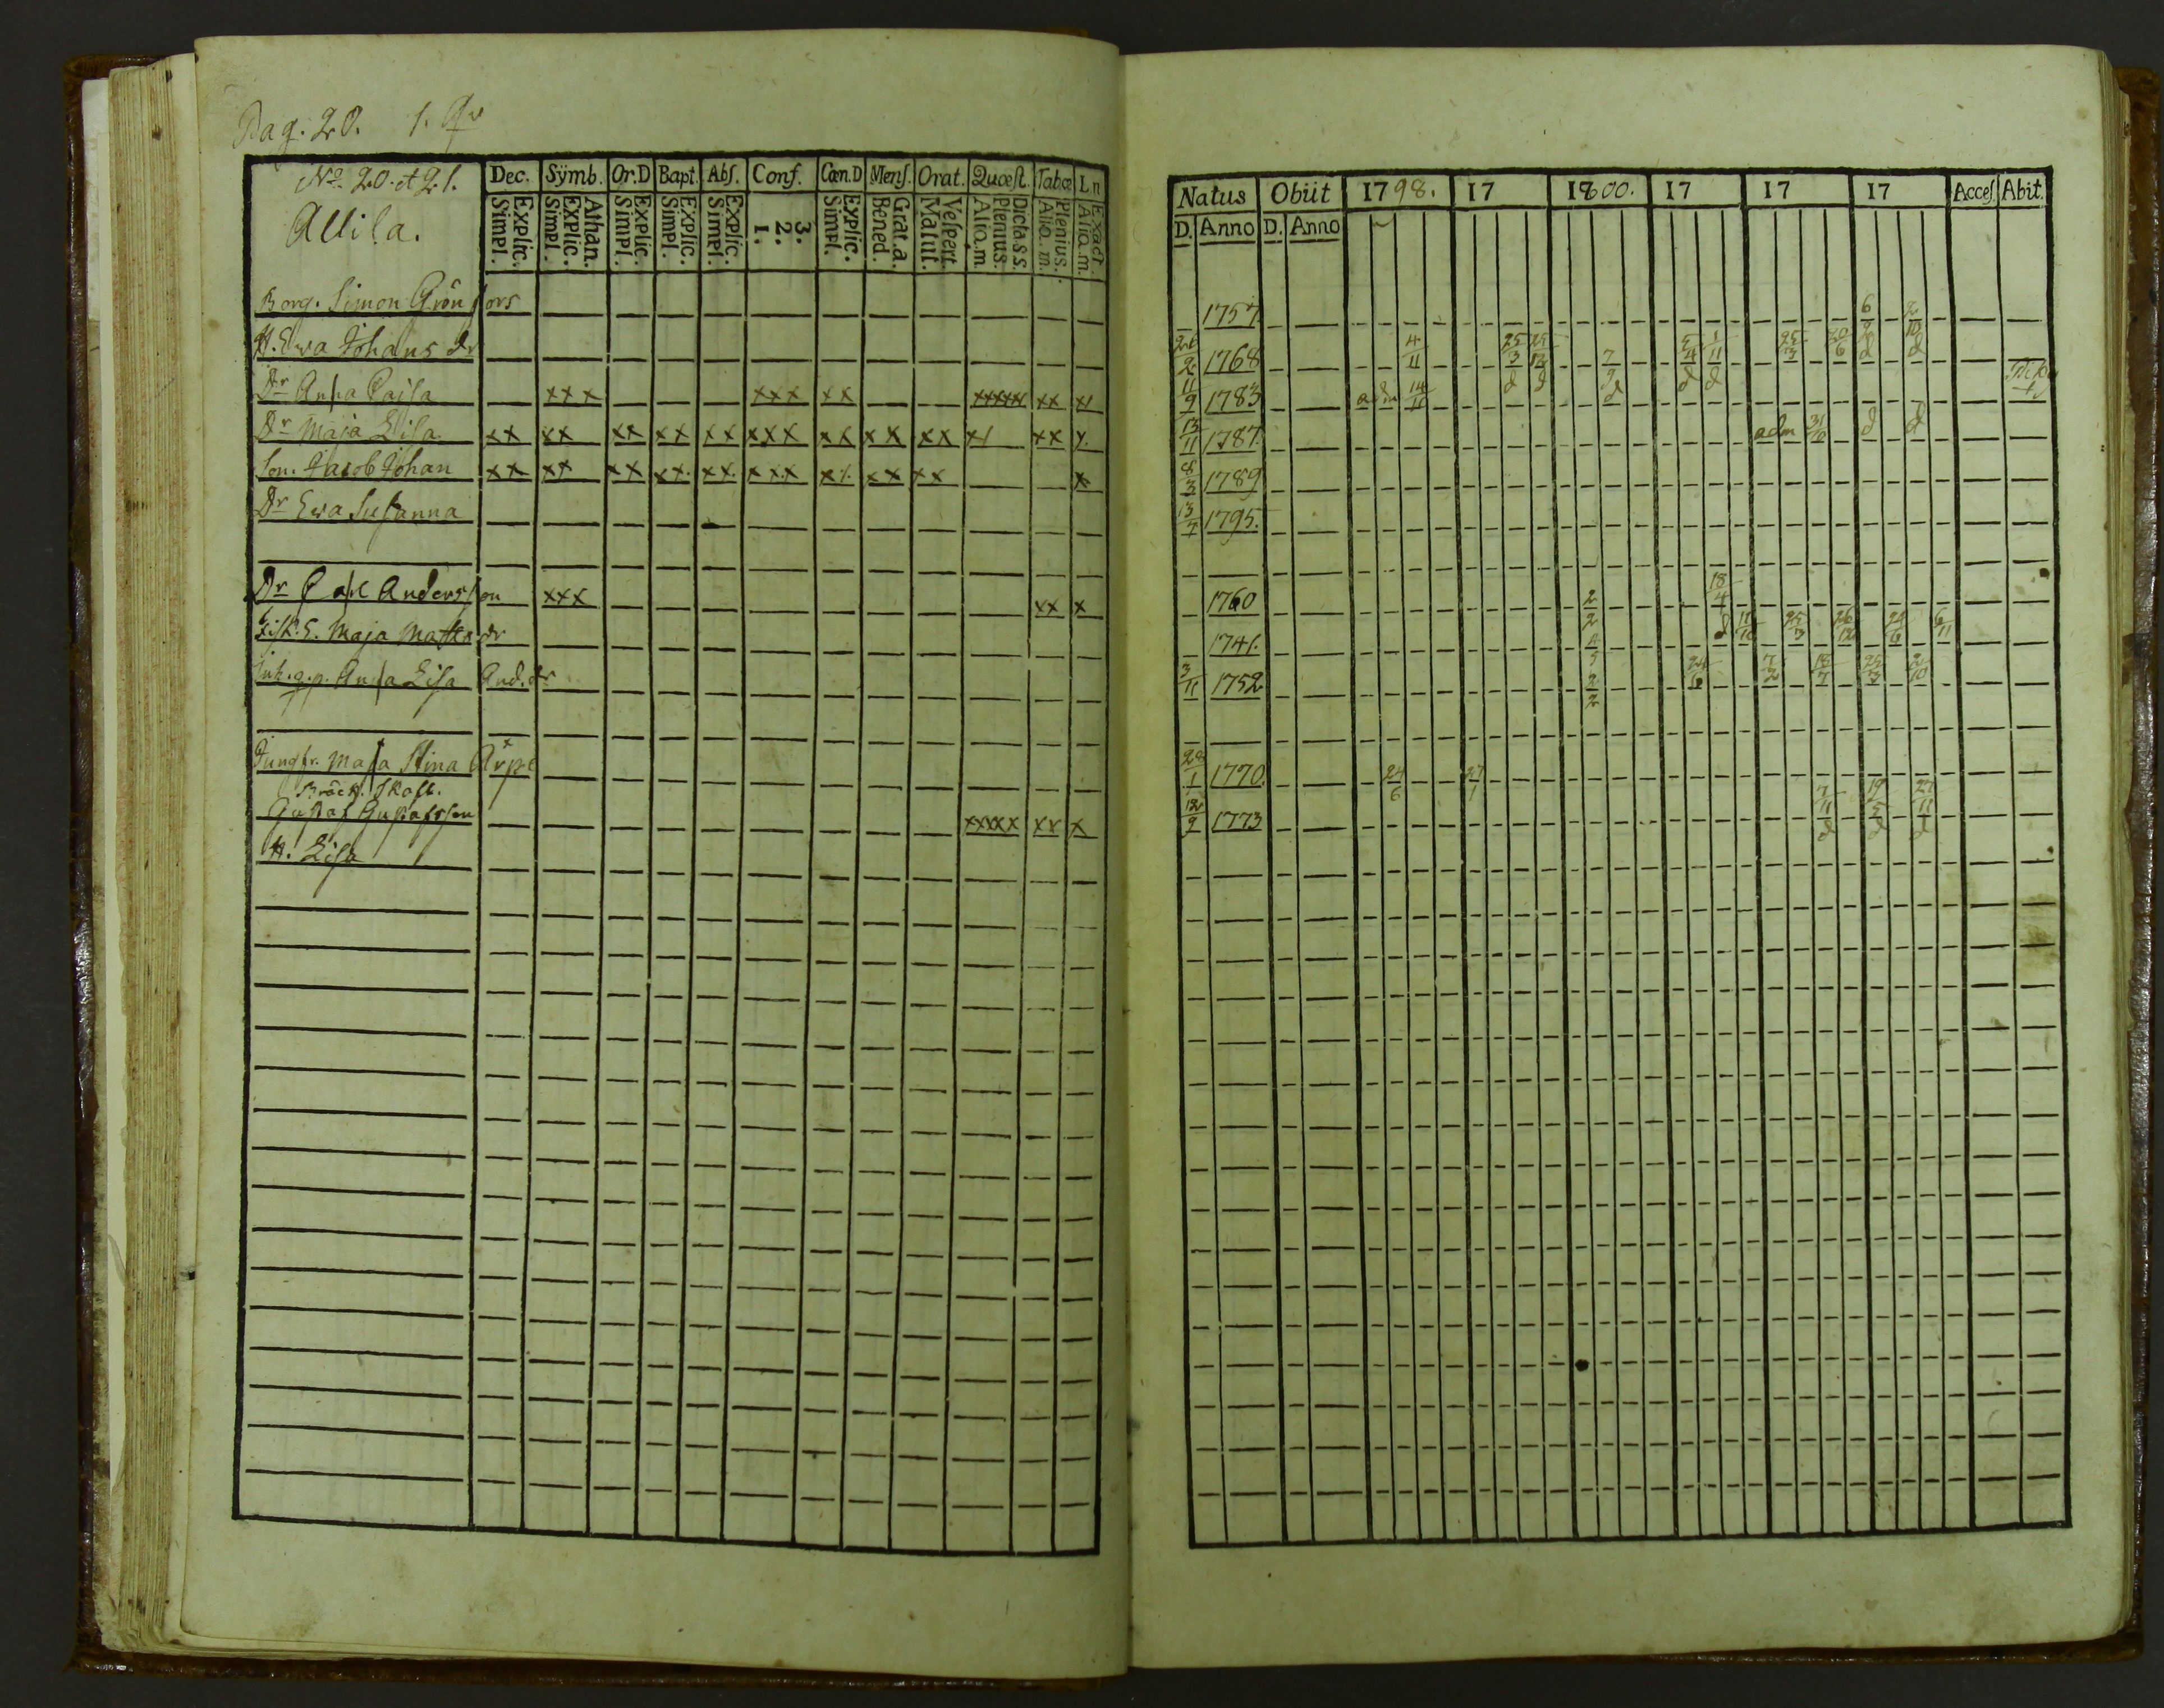 Pag. 20. 1. Qv
No. 20. et 21.
Allila.
Dec. Sÿmb. Or.D Bapt. Abſ. Conf. Cœn.D Menſ. Orat. Quæſt. Tabœ Ln
Explic. Simpl. Athan. Explic. Simpl. Explic. Simpl. Explic. Simpl. Explic. Simpl. 3. 2. 1. Explic. Simpl. Grat.a. Bened. Veſpert. Matut. Dicta.s.s. Plenius. Aliq.m Plenius. Aliq.m. Exact. Aliq.m.
Borg. Simon Grönfors
H. Ewa Johans dr
Dr Anna Caisa xxx xxx xx xxxxx xx x/
Dr Maja Lisa xx xx xx xx xx xxx xx xx xx x/ xx x.
Son. Jacob Johan xx xx xx xx. xx. xxx x/. xx xx x
Dr Ewa Susanna
Dr Carl Andersson xxx xx x
Maja Matts dr
Inh. q.p. Anna Lisa And. dr
Jungfr. Maja Stina Arpe
Gustaf Gustafsson xxxxx xx x
H. Lisa
Natus Obiit 1798. 17 1800. 17 17 17 Acceſ. Abit.
D. Anno D. Anno
1757 6 2
2 1768 4/11 25/3 7 5/4 1/11 25/3 20/6 9 10
d d d d d d d
11/9 1783 adm 14/11
13/11 1787 adm 31/10 d d
8/3 1789
13/7 1795.
1760 2/2 18/4
1741. 4/5 d 11/10 25/3 26/12 24/6 6/11
3/11 1752 2/2 24/6 7/2 18/7 25/3 2/10
28/1 1770. 24/6 27/1
12/9 1773 7/11 19/5 27/11
d d d